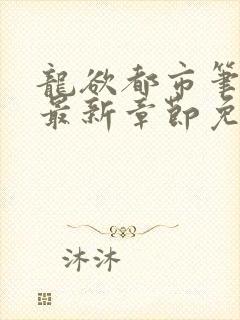 龍欲都市筆
最新章節免
沐沐